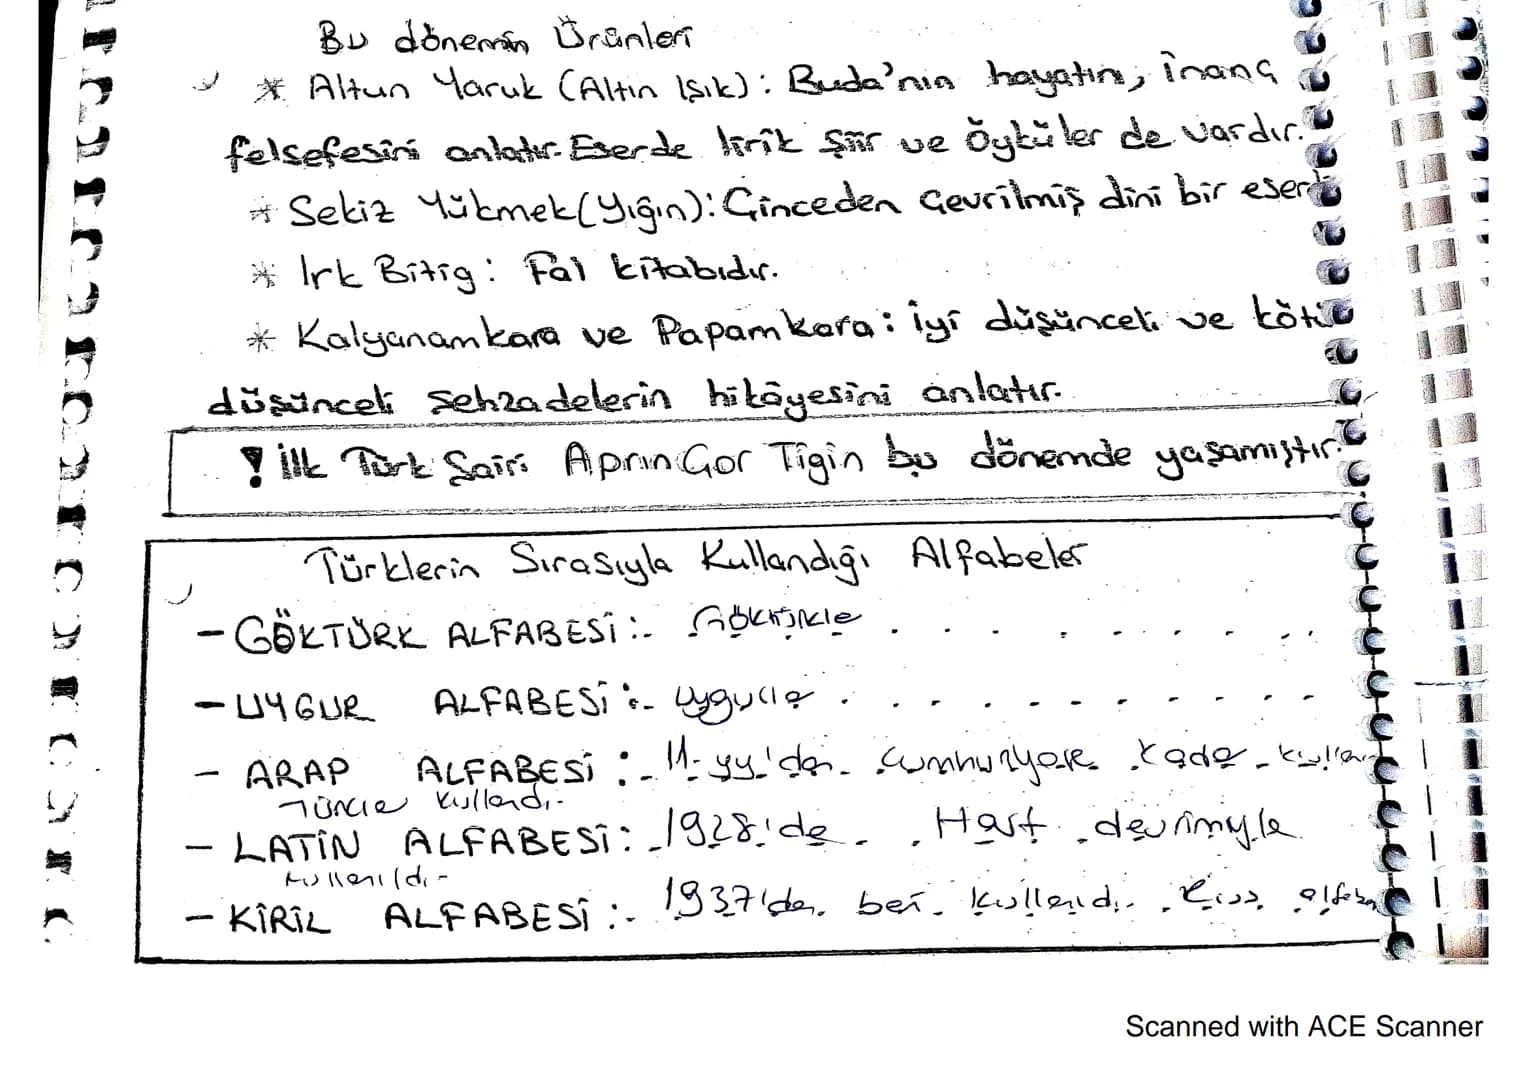 Bu dönemin Ürünleri
* Altun Yaruk (Altın Işık): Buda'nın hayatını, inanç
felsefesini anlatır. Eserde lirik şiir ve öyküler de vardır.
* Sekiz Yükmek (Yığın): Çinceden çevrilmiş dini bir eserdi
* Irk Bitig: Fal kitabıdır.
* Kalyanamkara ve Papamkara: iyi düşünceli ve kötü
düşünceli şehzadelerin hikâyesini anlatır.
! İlk Türk Şairi Aprın Çor Tigin bu dönemde yaşamıştır.
Türklerin Sırasıyla Kullandığı Alfabeler
- GÖKTÜRK ALFABESİ: Göktürkle
- UYGUR ALFABESİ: Uygurla
- ARAP ALFABESİ: 11. yy.'dan Cumhuriyete kadar
Türkler kullandı.
- LATİN ALFABESİ: 1928'de Harf devrimiyle
kullanıldı.
- KİRİL ALFABESİ: 1937'den beri kullanıldı. Rus alfab
Scanned with ACE Scanner